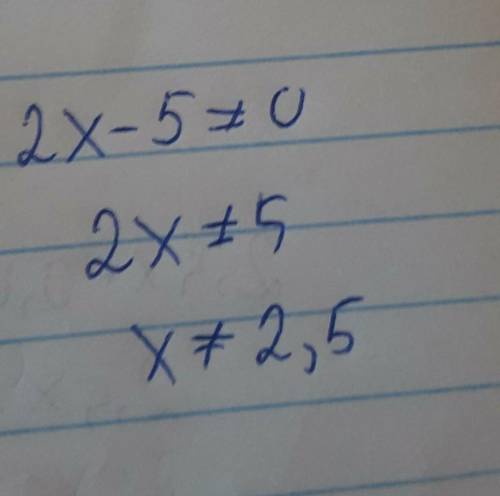 2x-5≠0
2x≠5
x≠2,5